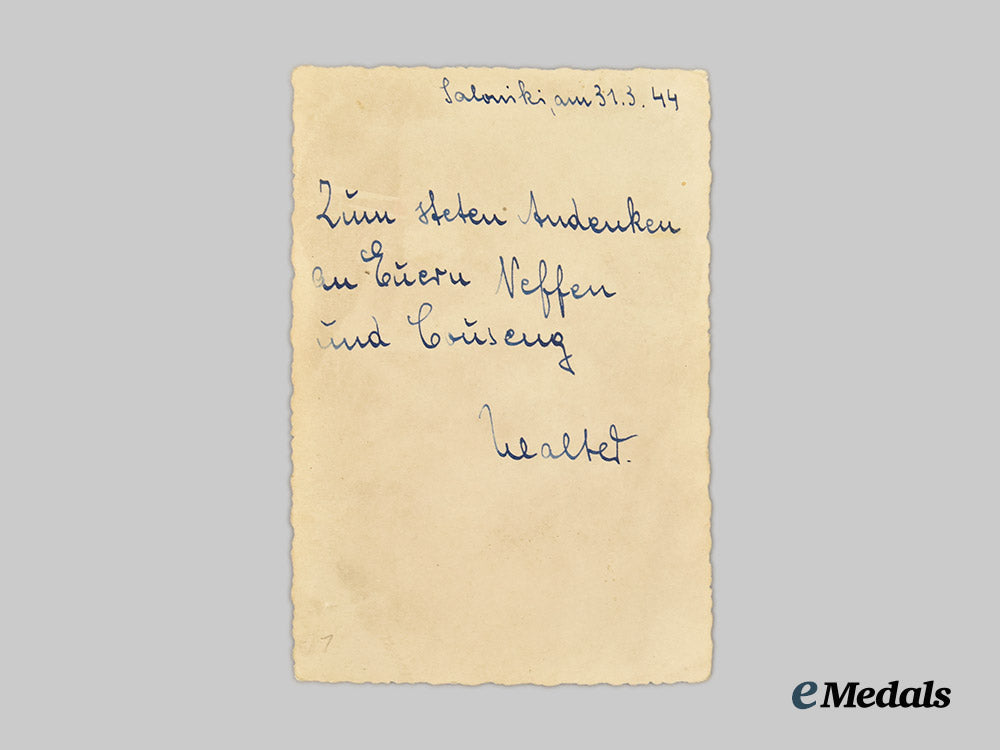 Saloniki, am 31.3.44
Zum steten Andenken
an Euern Neffen
und Couseng
Walter.
1
eMedals